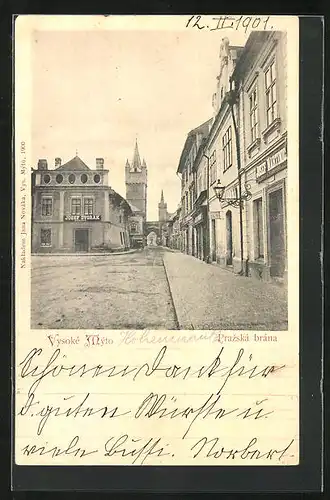 12. II. 1901.
Nakladem Jana Nováka, Vys. Mýto, 1900
JOSEF DVOŘÁK
Vysoké Mýto Hohenmauth Pražská brána
Schönen Dank für
d. guten Würste u
viele Bussi. Norbert